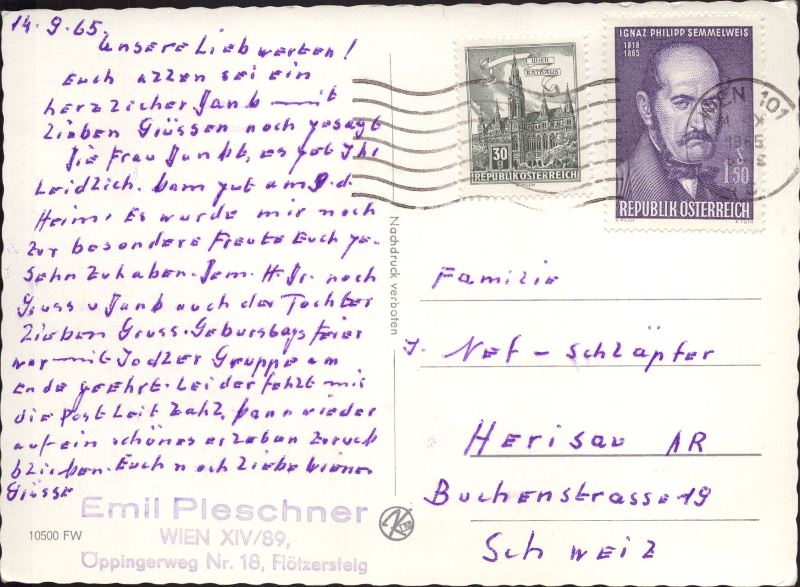 14.9.65.
Unsere Lieb werten!
Euch allen sei ein
herzlicher Dank mit
Lieben Grüssen noch gesagt
Die Frau Dankt, es get Ihr
Leidlich. kam gut am 9.d.
Heim. Es wurde mir noch
zur besondere Freute Euch ge-
sehn zuhaben. Dem H. Dr. noch
Gruss u Dank auch der Tochter
Lieben Gruss. Geburstags feier
war mit Jodler Gruppe am
Ende geehrt. Leider fehlt mir
die Post Leit Zahl, kann wieder
auf ein schönes erleben zuruck
blicken. Euch noch Liebe Wiener
Grüsse
Emil Pleschner
WIEN XIV/89,
Öppingerweg Nr. 18, Flötzersteig
10500 FW
Nachdruck verboten
WIEN
RATHAUS
30
g
REPUBLIK ÖSTERREICH
IGNAZ PHILIPP SEMMELWEIS
1818
1865
S
1.50
REPUBLIK ÖSTERREICH
WIEN 101
1965
Familie
J. Nef - Schläpfer
Herisau AR
Buchenstrasse 19
Schweiz